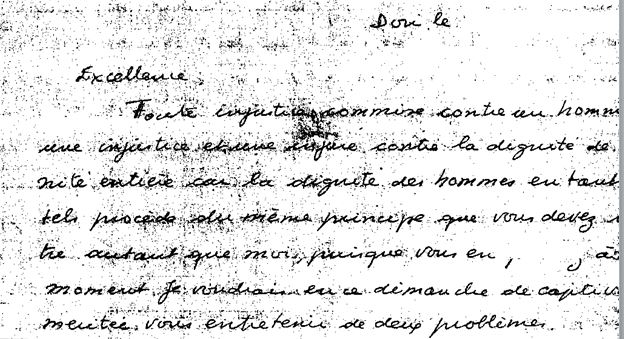 Dou le
Excellence,
Toute injustice commise contre un homm
une injustice et une injure contre la dignité de
nité entière car la dignité des hommes en tant
tels procède du même principe que vous devez
tre autant que moi, puisque vous en
moment. Je voudrais en ce dimanche de captiv
meritée vous entretenir de deux problèmes.